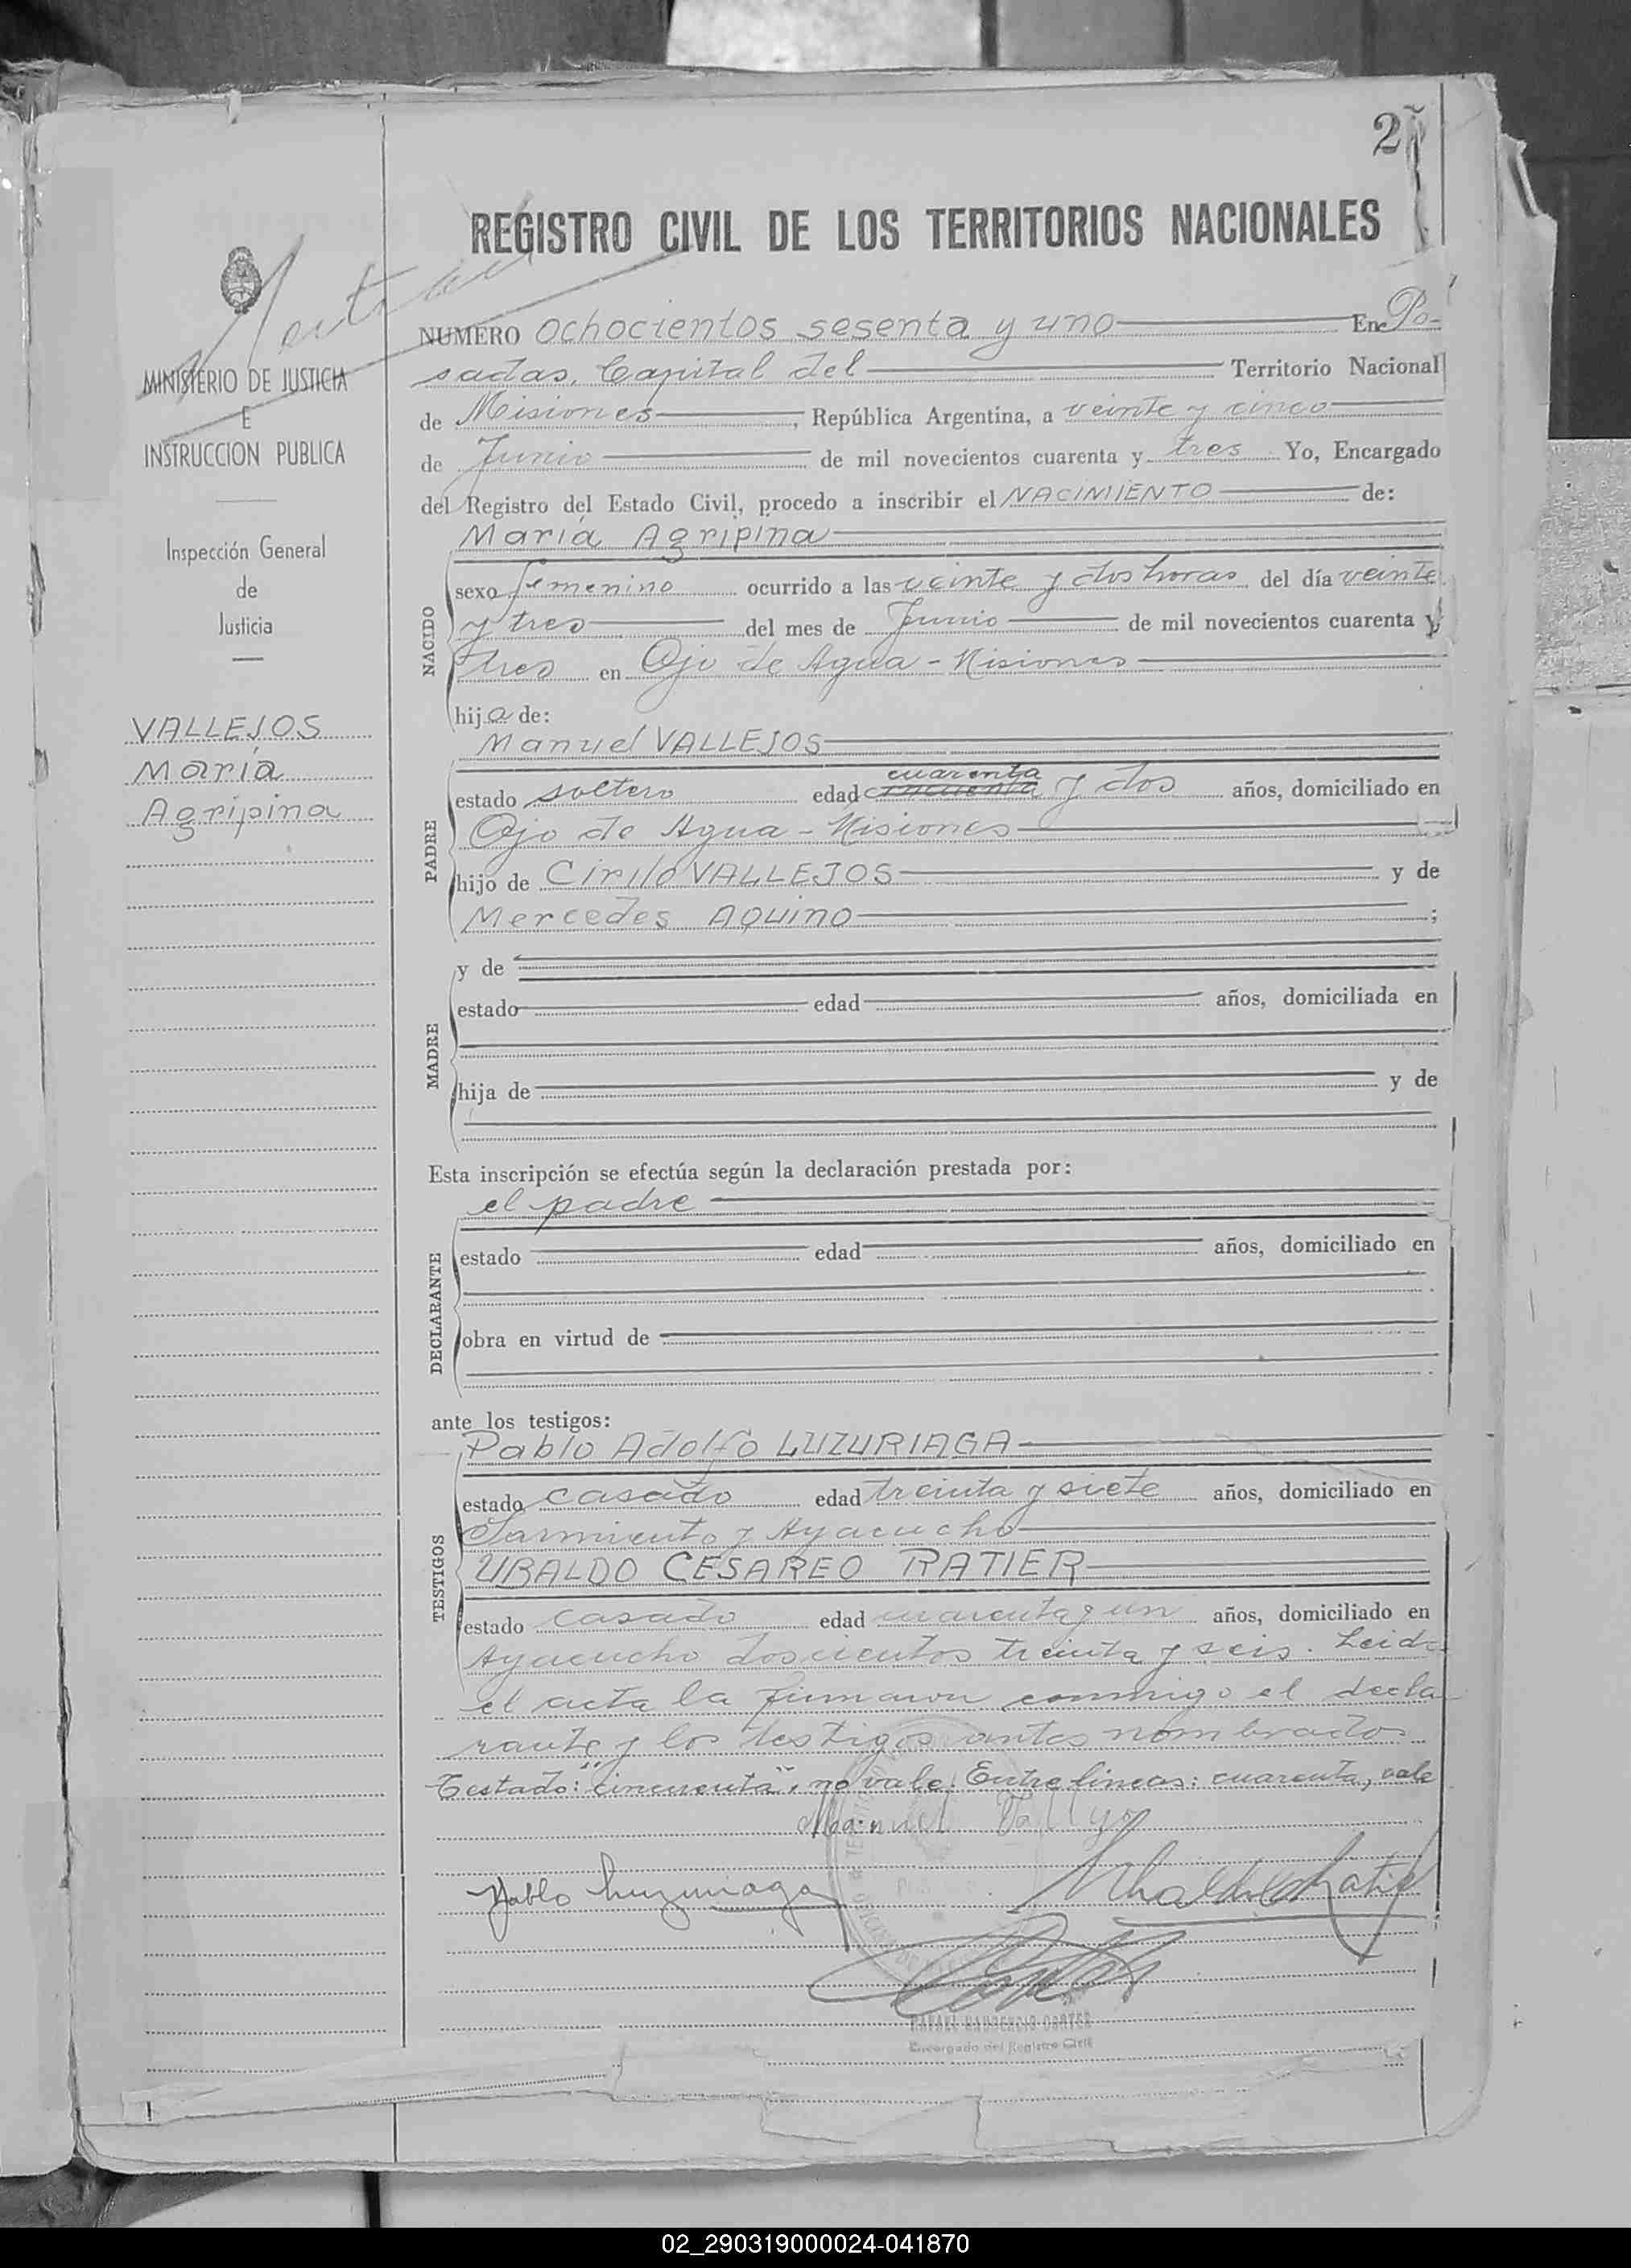 2
REGISTRO CIVIL DE LOS TERRITORIOS NACIONALES
MINISTERIO DE JUSTICIA
E
INSTRUCCION PUBLICA
Inspección General
de
Justicia
VALLEJOS
María
Agripina
NUMERO ochocientos sesenta y uno En Po-
sadas, Capital del Territorio Nacional
de Misiones, República Argentina, a veinte y cinco
de Junio de mil novecientos cuarenta y tres Yo, Encargado
del Registro del Estado Civil, procedo a inscribir el NACIMIENTO de:
María Agripina
NACIDO
sexo femenino ocurrido a las veinte y dos horas del día veinte
y tres del mes de Junio de mil novecientos cuarenta y
tres en Ojo de Agua - Misiones
hija de:
Manuel VALLEJOS
cuarenta
PADRE
estado soltero edad cincuenta y dos años, domiciliado en
Ojo de Agua - Misiones
hijo de Cirilo VALLEJOS y de
Mercedes AQUINO;
MADRE
y de
estado edad años, domiciliada en
hija de y de
Esta inscripción se efectúa según la declaración prestada por:
el padre
DECLARANTE
estado edad años, domiciliado en
obra en virtud de
ante los testigos:
Pablo Adolfo LUZURIAGA
TESTIGOS
estado casado edad treinta y siete años, domiciliado en
Sarmiento y Ayacucho
UBALDO CESAREO RATIER
estado casado edad cuarenta y un años, domiciliado en
Ayacucho doscientos treinta y seis. Leida
el acta la firmaron conmigo el decla
rante y los testigos antes nombrados
Testado: "cincuenta", no vale. Entre lineas: cuarenta, vale
Manuel Vallejo
Pablo Luzuriaga
Encargado del Registro Civil
02_290319000024-041870